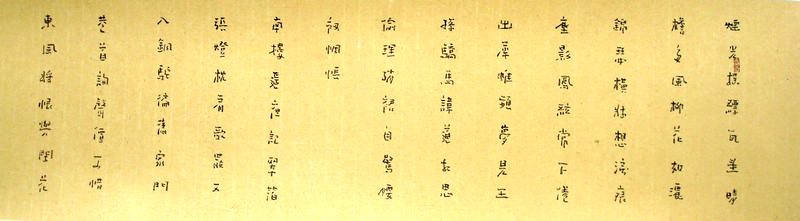 煙光搖縹瓦望晴
檐多風柳花如灑
錦瑟橫牀想淚痕
塵影鳳絃常下倦
出犀帷頻夢見王
孫驕馬諱道相思
偷理綃裙自驚腰
衩惆悵
南樓遙夜記翠箔
張燈枕肩歌罷又
入銅駝遍舊家門
巷首詢聲價可惜
東風將恨與閒花